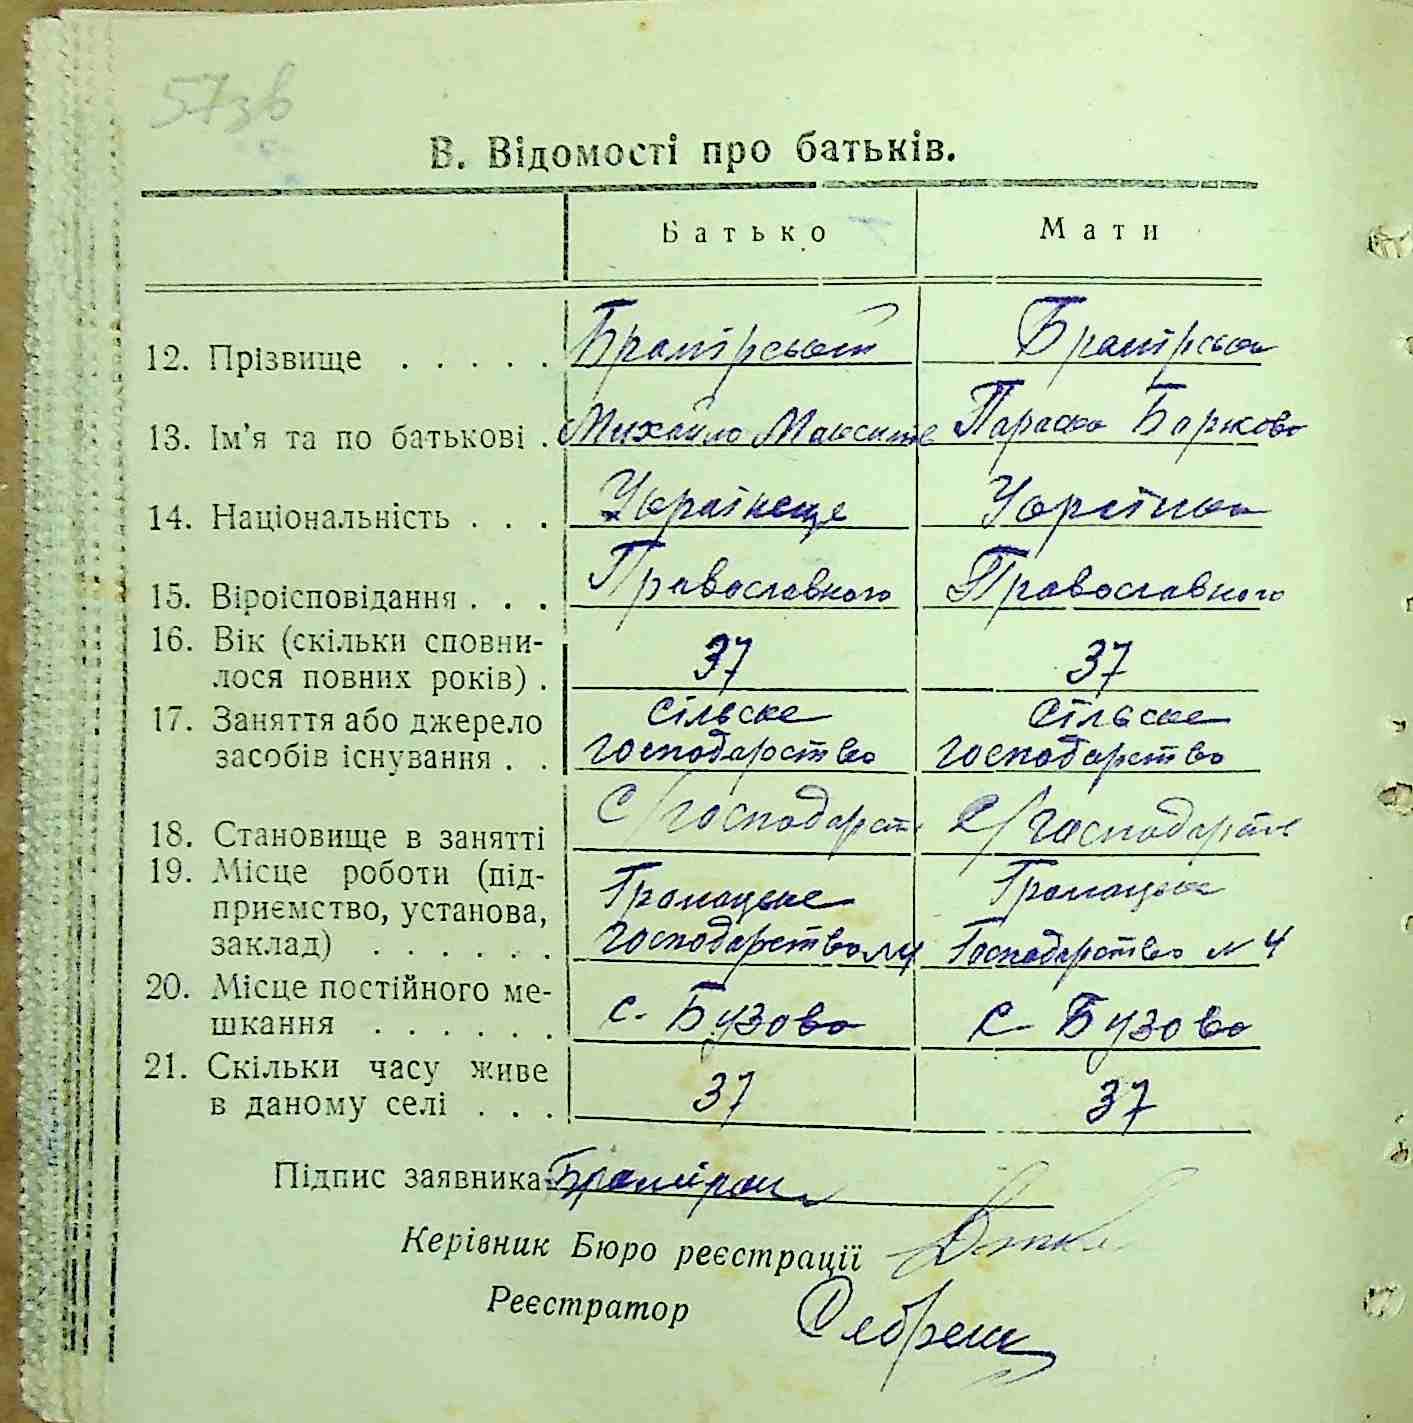 57зв
В. Відомості про батьків.
Батько Мати
12. Прізвище . . . . . Брамірський Брамірська
13. Ім'я та по батькові . Михайло Максимов Параска Баркова
14. Національність . . . Українець Українка
15. Віроісповідання . . . Православного Православного
16. Вік (скільки сповни-
лося повних років) . 37 37
17. Заняття або джерело Сільске Сільске
засобів існування . . господарство господарство
18. Становище в занятті С/господарств С/господарств
19. Місце роботи (під- Громацьке Громацьке
приємство, установа,
заклад) . . . . . . господарство №4 Господарство №4
20. Місце постійного ме-
шкання . . . . . . с. Бузова с. Бузова
21. Скільки часу живе
в даному селі . . . 37 37
Підпис заявника
Керівник Бюро реєстрації
Реєстратор